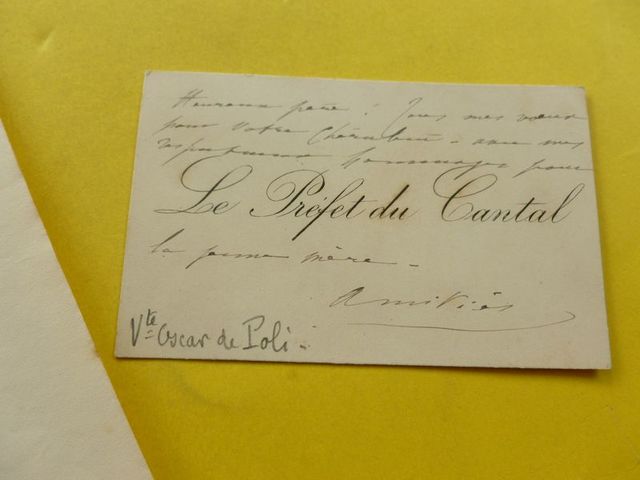 Heureux père ! Tous mes vœux
pour votre Chérubin - avec mes
respectueux hommages pour
Le Préfet du Cantal
la jeune mère -
Amitiés
Vte Oscar de Poli -